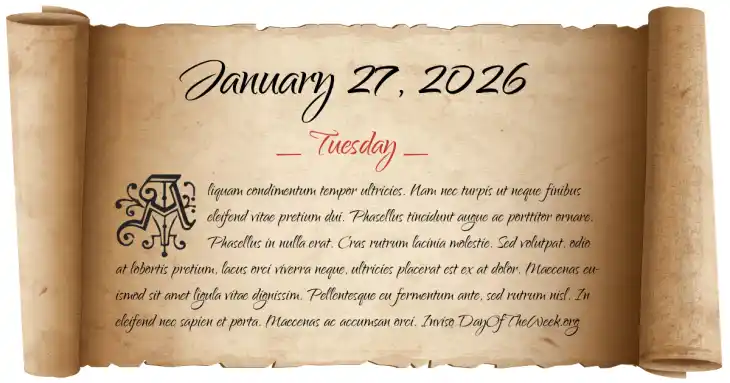 January 27, 2026
_ Tuesday _
Aliquam condimentum tempor ultricies. Nam nec turpis ut neque finibus
eleifend vitae pretium dui. Phasellus tincidunt augue ac porttitor ornare.
Phasellus in nulla erat. Cras rutrum lacinia molestie. Sed volutpat, odio
at lobortis pretium, lacus orci viverra neque, ultricies placerat est ex at dolor. Maecenas eu-
ismod sit amet ligula vitae dignissim. Pellentesque eu fermentum ante, sed rutrum nisl. In
eleifend nec sapien et porta. Maecenas ac accumsan orci. Inviso DayOfTheWeek.org